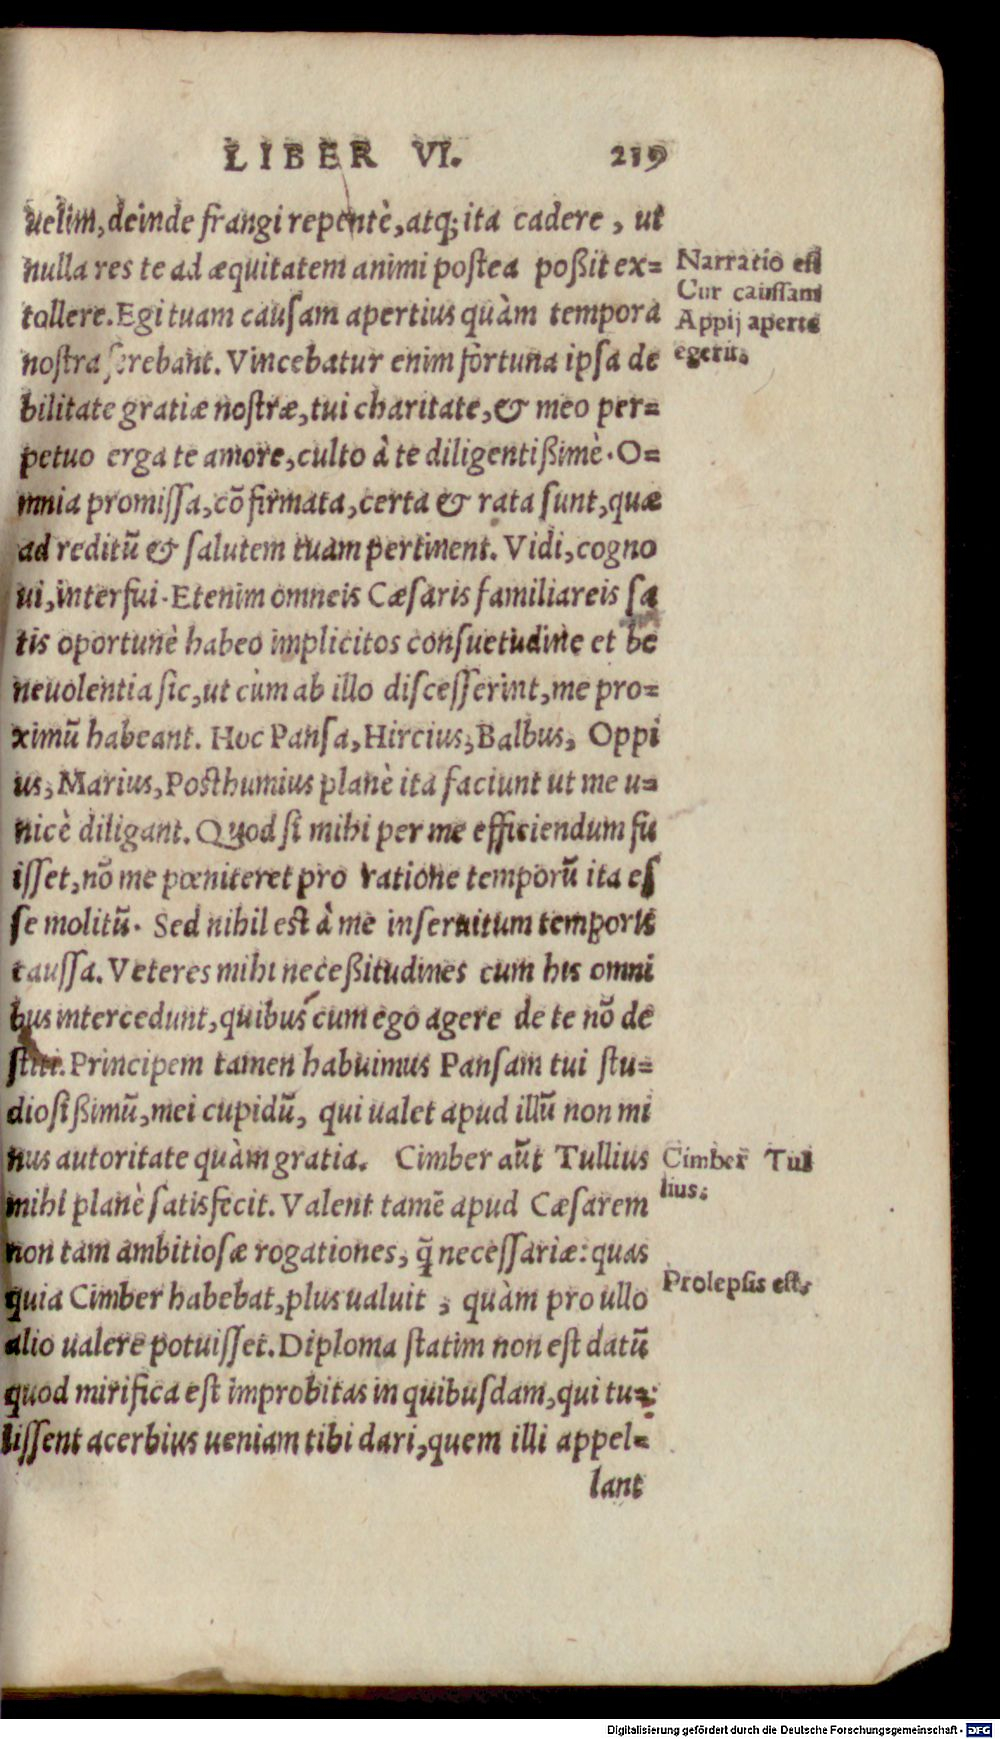 LIBER VI. 219
uelim, deinde frangi repentè, atq; ita cadere, ut
nulla res te ad æquitatem animi postea poßit ex=
tollere. Egi tuam causam apertius quàm tempora
nostra ferebant. Vincebatur enim fortuna ipsa de
bilitate gratiæ nostræ, tui charitate, & meo per=
petuo erga te amore, culto à te diligentißimè. O=
mnia promissa, cõfirmata, certa & rata sunt, quæ
ad reditũ & salutem tuam pertinent. Vidi, cogno
ui, interfui. Etenim omneis Cæsaris familiareis sa
tis oportunè habeo implicitos consuetudine et be
neuolentia sic, ut cùm ab illo discesserint, me pro=
ximũ habeant. Hoc Pansa, Hircius, Balbus, Oppi
us, Marius, Posthumius planè ita faciunt ut me u=
nicè diligant. Quod si mihi per me efficiendum fu
isset, nõ me pœniteret pro ratione temporũ ita es
se molitũ. Sed nihil est à me inseruitum temporis
caussa. Veteres mihi neceßitudines cum his omni
bus intercedunt, quibus cum ego agere de te nõ de
stiti. Principem tamen habuimus Pansam tui stu=
diosißimũ, mei cupidũ, qui ualet apud illũ non mi
nus autoritate quàm gratia. Cimber aũt Tullius
mihi planè satisfecit. Valent tamẽ apud Cæsarem
non tam ambitiosæ rogationes, q̃ necessariæ: quas
quia Cimber habebat, plus ualuit, quàm pro ullo
alio ualere potuisset. Diploma statim non est datũ
quod mirifica est improbitas in quibusdam, qui tu=
lissent acerbius ueniam tibi dari, quem illi appel=
lant
Narratio est
Cur caussam
Appij aperte
egerit.
Cimber Tul
lius.
Prolepsis est.
Digitalisierung gefördert durch die Deutsche Forschungsgemeinschaft - DFG